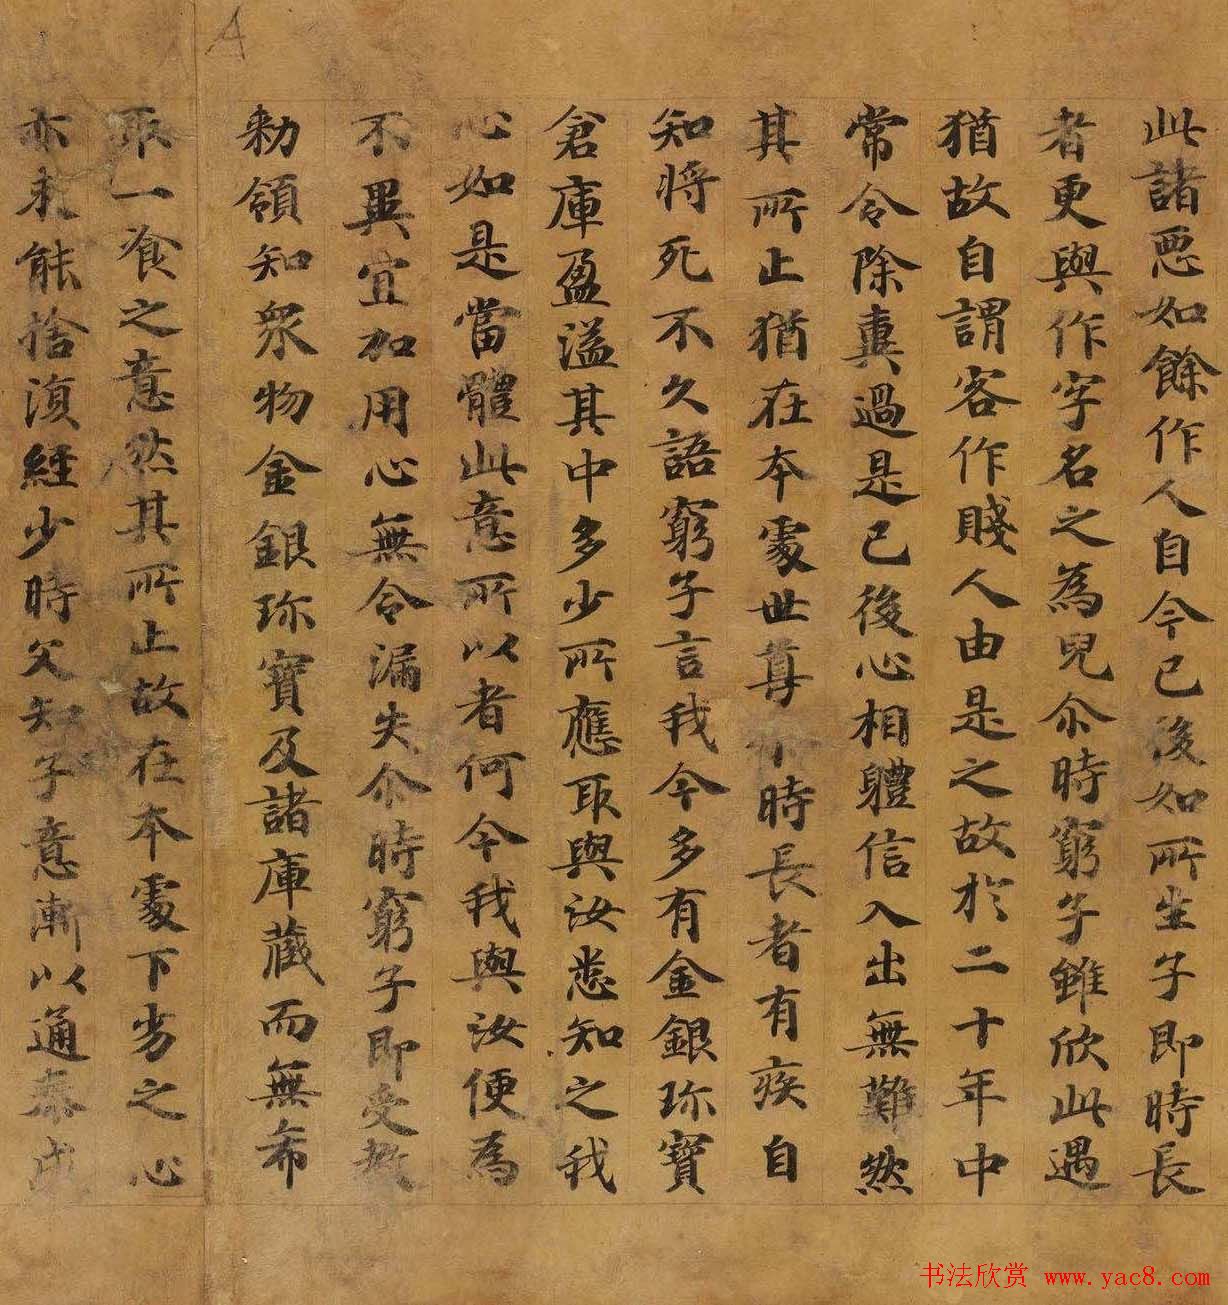 此諸惡如餘作人自今已後如所生子即時長
者更與作字名之為兒尒時窮子雖欣此遇
猶故自謂客作賤人由是之故於二十年中
常令除糞過是已後心相體信入出無難然
其所止猶在本處世尊尒時長者有疾自
知將死不久語窮子言我今多有金銀珎寶
倉庫盈溢其中多少所應取與汝悉知之我
心如是當體此意所以者何今我與汝便為
不異宜加用心無令漏失尒時窮子即受教
勑領知眾物金銀珎寶及諸庫藏而無希
取一飡之意然其所止故在本處下劣之心
亦未能捨湏經少時父知子意漸以通泰成
A
书法欣赏 www.yac8.com